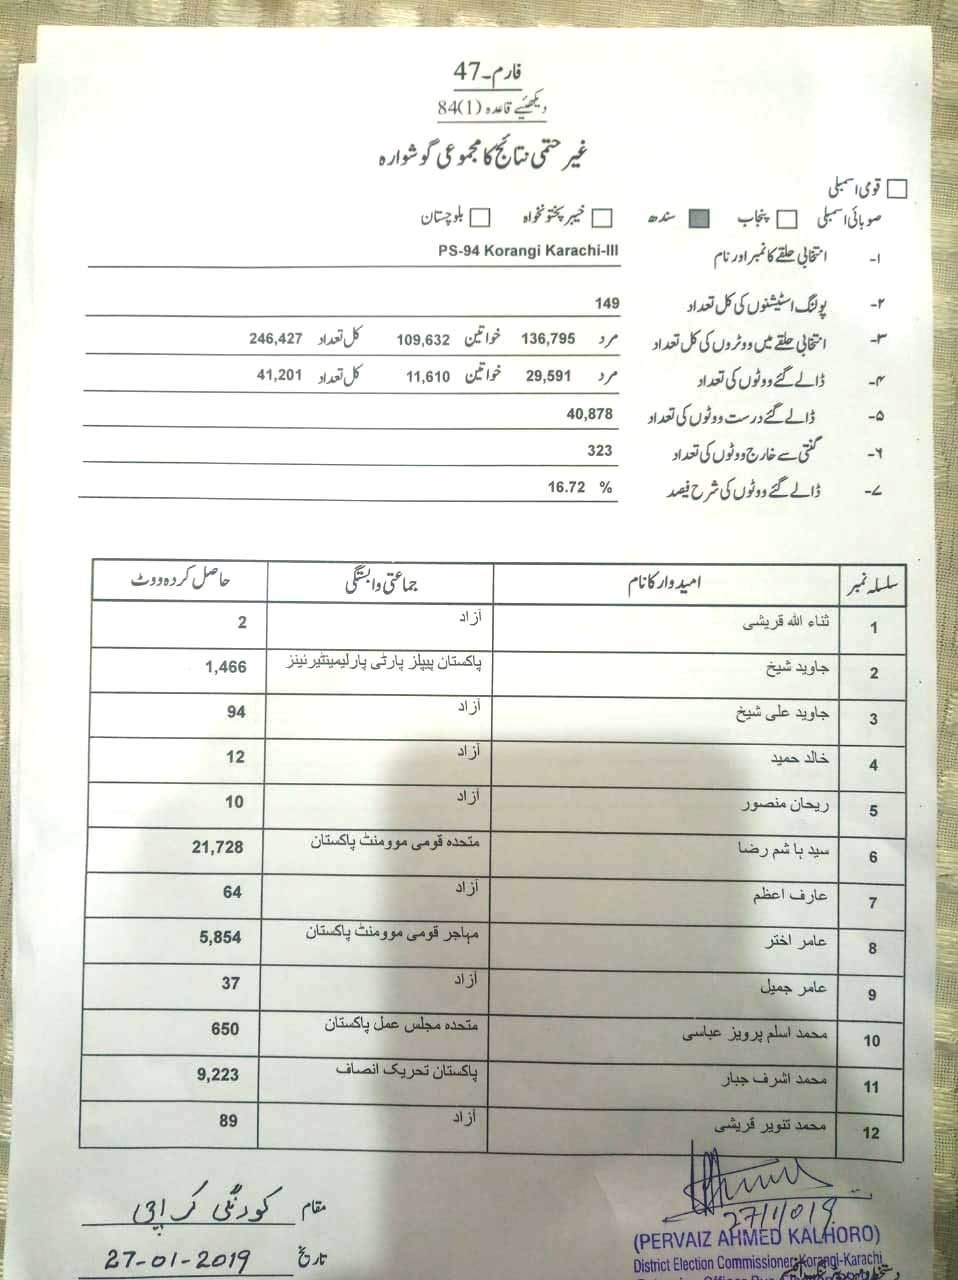 فارم۔47
دیکھئیے قاعدہ (1)84
غیر حتمی نتائج کا مجموعی گوشوارہ
قومی اسمبلی
صوبائی اسمبلی پنجاب سندھ خیبر پختونخواہ بلوچستان
۱- انتخابی حلقے کا نمبر اور نام PS-94 Korangi Karachi-III
۲- پولنگ اسٹیشنوں کی کل تعداد 149
۳- انتخابی حلقے میں ووٹروں کی کل تعداد مرد 136,795 خواتین 109,632 کل تعداد 246,427
۴- ڈالے گئے ووٹوں کی تعداد مرد 29,591 خواتین 11,610 کل تعداد 41,201
۵- ڈالے گئے درست ووٹوں کی تعداد 40,878
۶- گنتی سے خارج ووٹوں کی تعداد 323
۷- ڈالے گئے ووٹوں کی شرح فیصد 16.72 %
سلسلہ نمبر امیدوار کا نام جماعتی وابستگی حاصل کردہ ووٹ
1 ثناء اللہ قریشی آزاد 2
2 جاوید شیخ پاکستان پیپلز پارٹی پارلیمینٹیرئینز 1,466
3 جاوید علی شیخ آزاد 94
4 خالد حمید آزاد 12
5 ریحان منصور آزاد 10
6 سید ہاشم رضا متحدہ قومی موومنٹ پاکستان 21,728
7 عارف اعظم آزاد 64
8 عامر اختر مہاجر قومی موومنٹ پاکستان 5,854
9 عامر جمیل آزاد 37
10 محمد اسلم پرویز عباسی متحدہ مجلس عمل پاکستان 650
11 محمد اشرف جبار پاکستان تحریک انصاف 9,223
12 محمد تنویر قریشی آزاد 89
مقام کورنگی کراچی
27/1/019
(PERVAIZ AHMED KALHORO)
تاریخ 27-01-2019
District Election Commissioner Korangi-Karachi